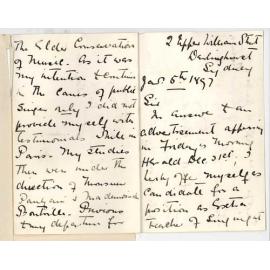 2 Upper William Street
Darlinghurst
Sydney
Jan. 5th 1897
Sir
In answer to an
advertisement appearing
in Friday's Morning
Herald Dec 31st, I
beg to offer myself as
Candidate for a
position as
teacher of Singing at
The Elder Conservatorium
of Music. As it was
my intention to continue
in the career of public
Singer only I did not
provide myself with
testimonials while in
Paris. My studies
there were under the
direction of Monsieur
& Mademoiselle
Bataille. Previous
to my departure for